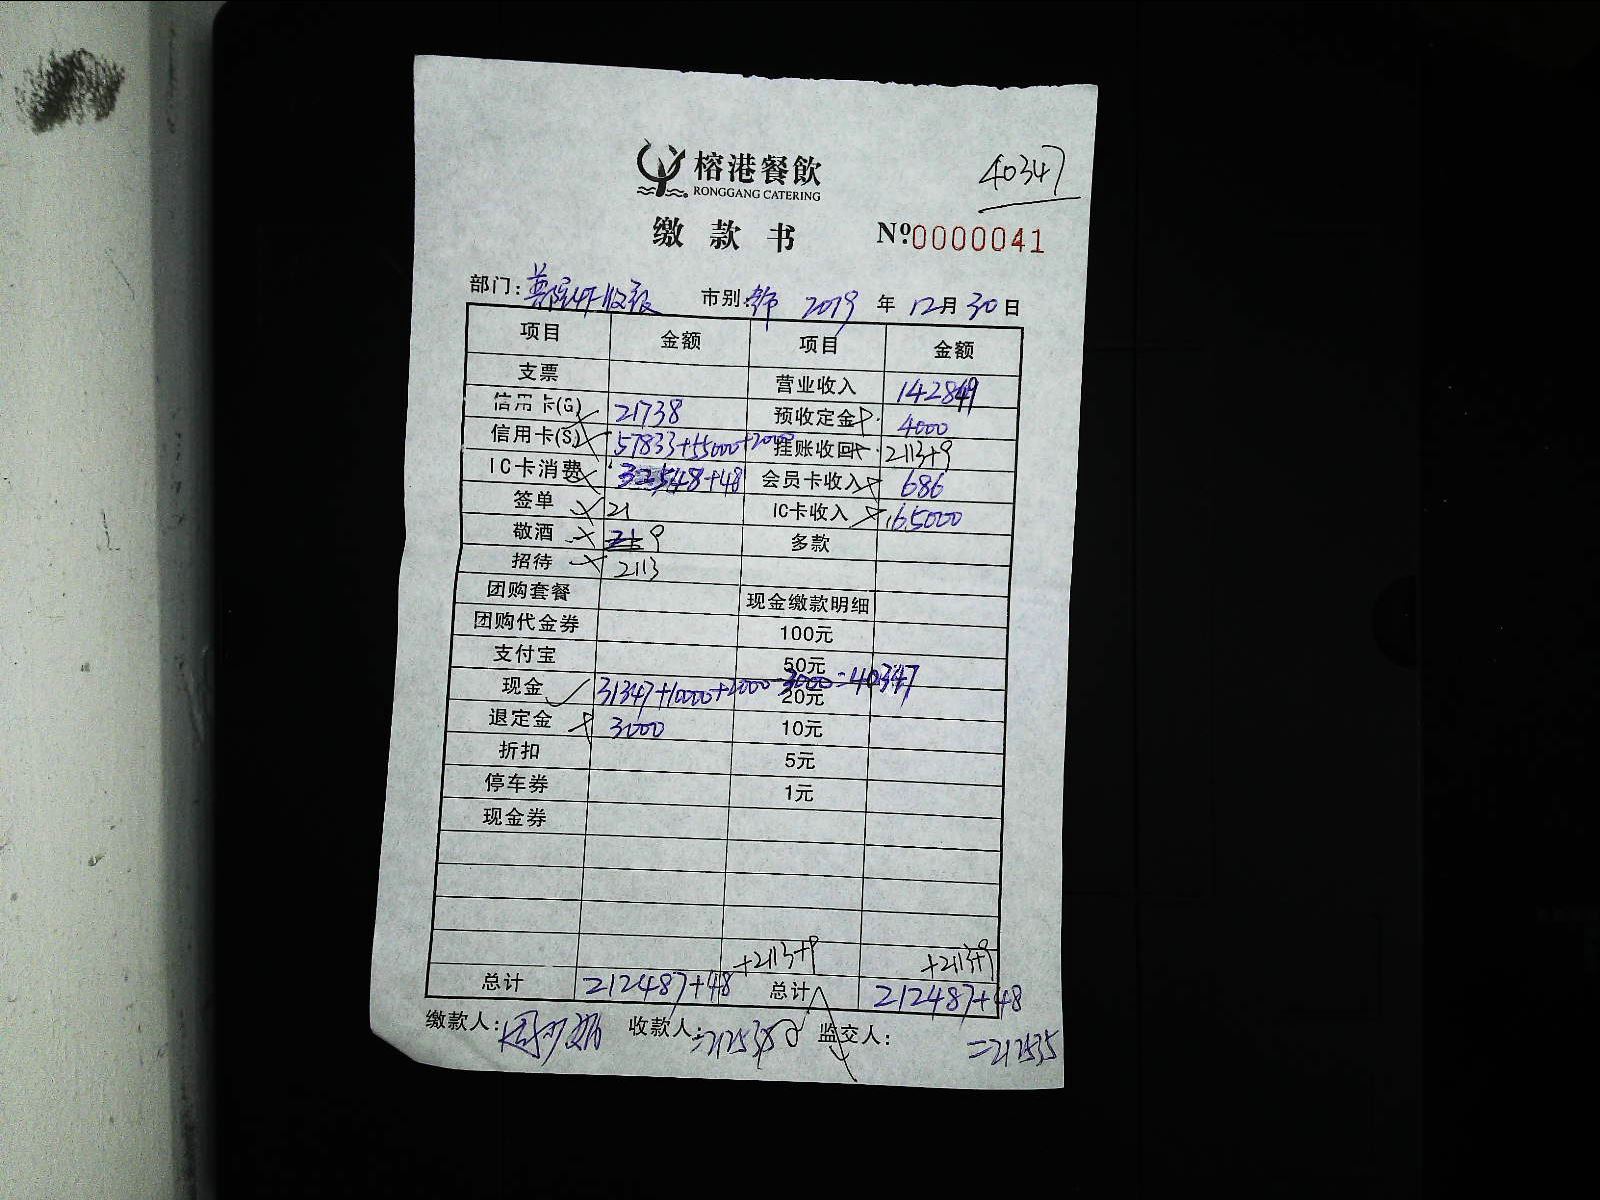 榕港餐飲
RONGGANG CATERING
40347
缴款书 Nº0000041
部门: 市别: 2019 年 12 月 30 日
项目 金额 项目 金额
支票 营业收入 142849
信用卡(G) 21738 预收定金 4000
信用卡(S) 57833+55000+2000 挂账收回 2113+9
IC卡消费 548+48 会员卡收入 686
签单 21 IC卡收入 65000
敬酒 9 多款
招待 2113
团购套餐 现金缴款明细
团购代金券 100元
支付宝 50元
现金 31347+10000+2000-3000=40347 20元
退定金 3000 10元
折扣 5元
停车券 1元
现金券
+2113+9 +2113+9
总计 212487+48 总计 212487+48
缴款人: 收款人: 监交人: =212535